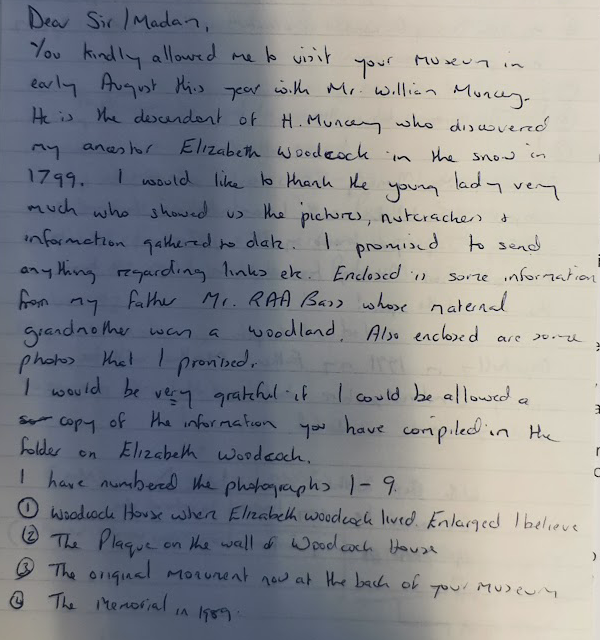 Dear Sir/Madam,
You kindly allowed me to visit your Museum in
early August this year with Mr. William Muncey.
He is the descendant of H. Muncey who discovered
my ancestor Elizabeth Woodcock in the snow in
1799. I would like to thank the young lady very
much who showed us the pictures, nutcrackers &
information gathered to date. I promised to send
anything regarding links etc. Enclosed is some information
from my father Mr. RAA Bass whose maternal
grandmother was a woodland. Also enclosed are some
photos that I promised.
I would be very grateful if I could be allowed a
copy of the information you have compiled in the
folder on Elizabeth Woodcock.
I have numbered the photographs 1-9.
① Woodcock House where Elizabeth woodcock lived. Enlarged I believe
② The Plaque on the wall of Woodcock House
③ The original Monument now at the back of your Museum
④ The Memorial in 1989.